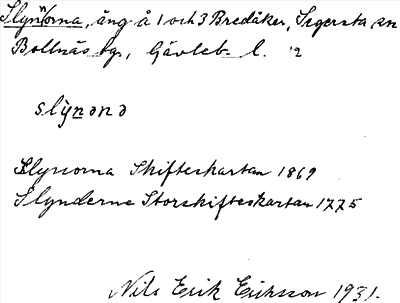 Slynorna, äng å 1 och 3 Bredåker, Segersta sn
Bollnäs tg., Gävleb. l.
slynənə
Slynorna Skifteskartan 1869
Slynderne Storskifteskartan 1775
Nils Erik Eriksson 1931.